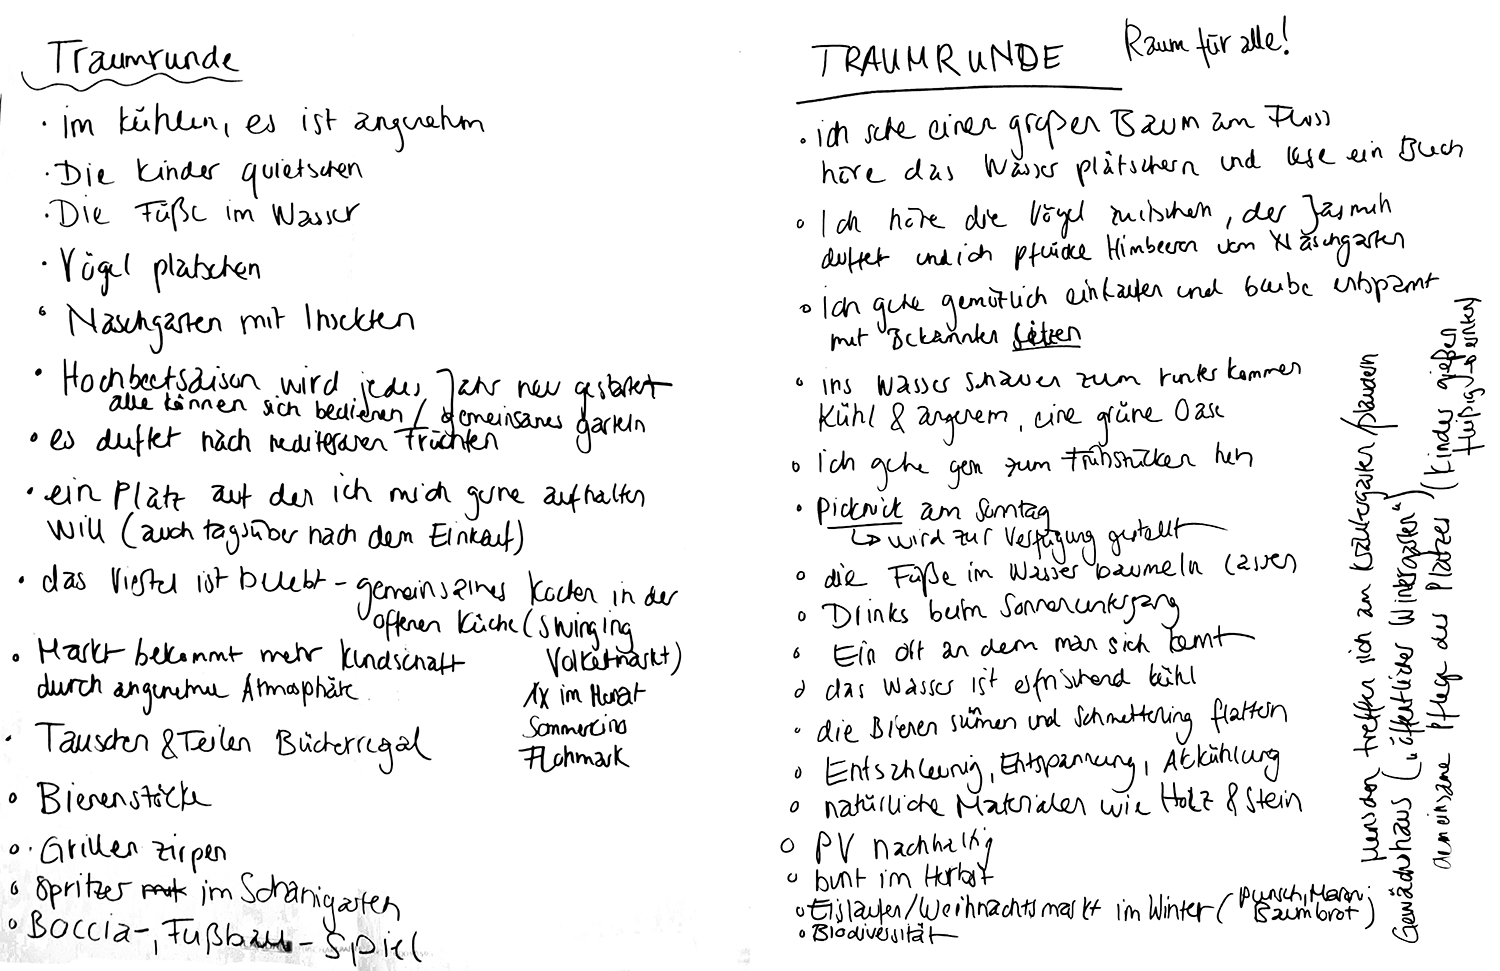 Traumrunde
· im kühlen, es ist angenehm
· Die Kinder quietschen
· Die Füße im Wasser
· Vögel platschen
· Naschgarten mit Insekten
· Hochbeetsaison wird jedes Jahr neu gestartet
alle können sich bedienen / gemeinsames garteln
· es duftet nach mediteranen Früchten
· ein Platz auf den ich mich gerne aufhalten
will (auch tagsüber nach dem Einkauf)
· das Viertel ist belebt - gemeinsames Kochen in der
offenen Küche (Swinging
Volkertmarkt)
· Markt bekommt mehr Kundschaft
durch angenehme Atmosphäre
1x im Monat
Sommerkino
Flohmark
· Tauschen & Teilen Bücherregal
· Bienenstöcke
· Grillen zirpen
· Spritzer im Schanigarten
· Boccia-, Fußball - Spiel
TRAUMRUNDE
Raum für alle!
· ich sehe einen großen Baum am Fluss
höre das Wasser plätschern und lese ein Buch
· Ich höre die Vögel zwitschern, der Jasmin
duftet und ich pflücke Himbeeren vom Naschgarten
· Ich gehe gemütlich einkaufen und bleibe entspannt
mit Bekannten sitzen
· ins Wasser schauen zum runterkommen
Kühl & angenem, eine grüne Oase
· Ich gehe gern zum Frühstücken hin
· Picknick am Sonntag
↳ wird zur Verfügung gestellt
· die Füße im Wasser baumeln lassen
· Drinks beim Sonnenuntergang
· Ein Ort an dem man sich kennt
· das Wasser ist erfrischend kühl
· die Bienen summen und Schmetterling flattern
· Entschleunig, Entspannung, Abkühlung
· natürliche Materialen wie Holz & Stein
· PV nachhaltig
· bunt im Herbst
· Eislaufen/Weihnachtsmarkt im Winter (Punsch, Maroni
Baumbrot)
· Biodiversität
Menschen treffen sich am Kräutergarten/plaudern
Gewächshaus („öffentlicher Wintergarten")
Gemeinsame Pflege des Platzes (Kinder gießen
fleißig